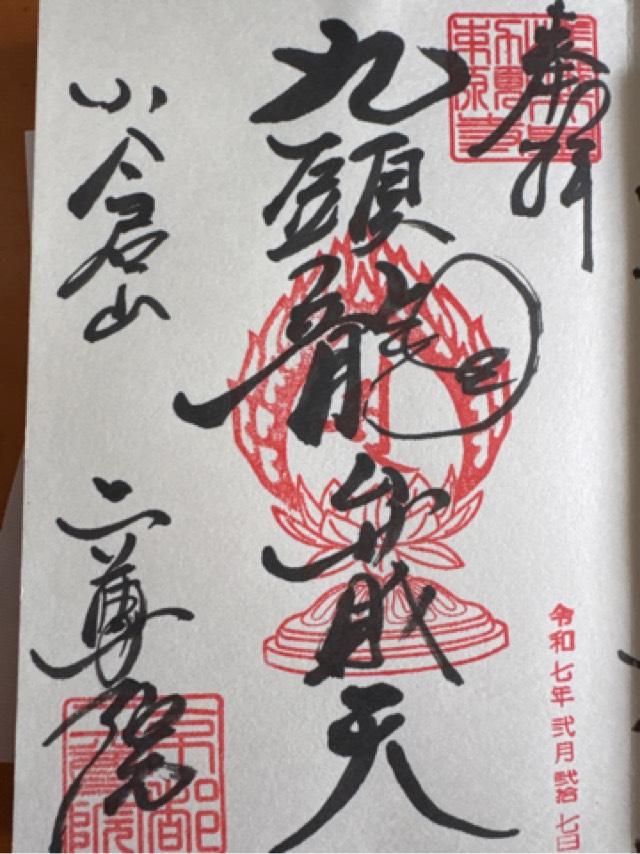 奉拝
令和七年弐月弐拾七日
九頭龍弁財天
小倉山
二尊院